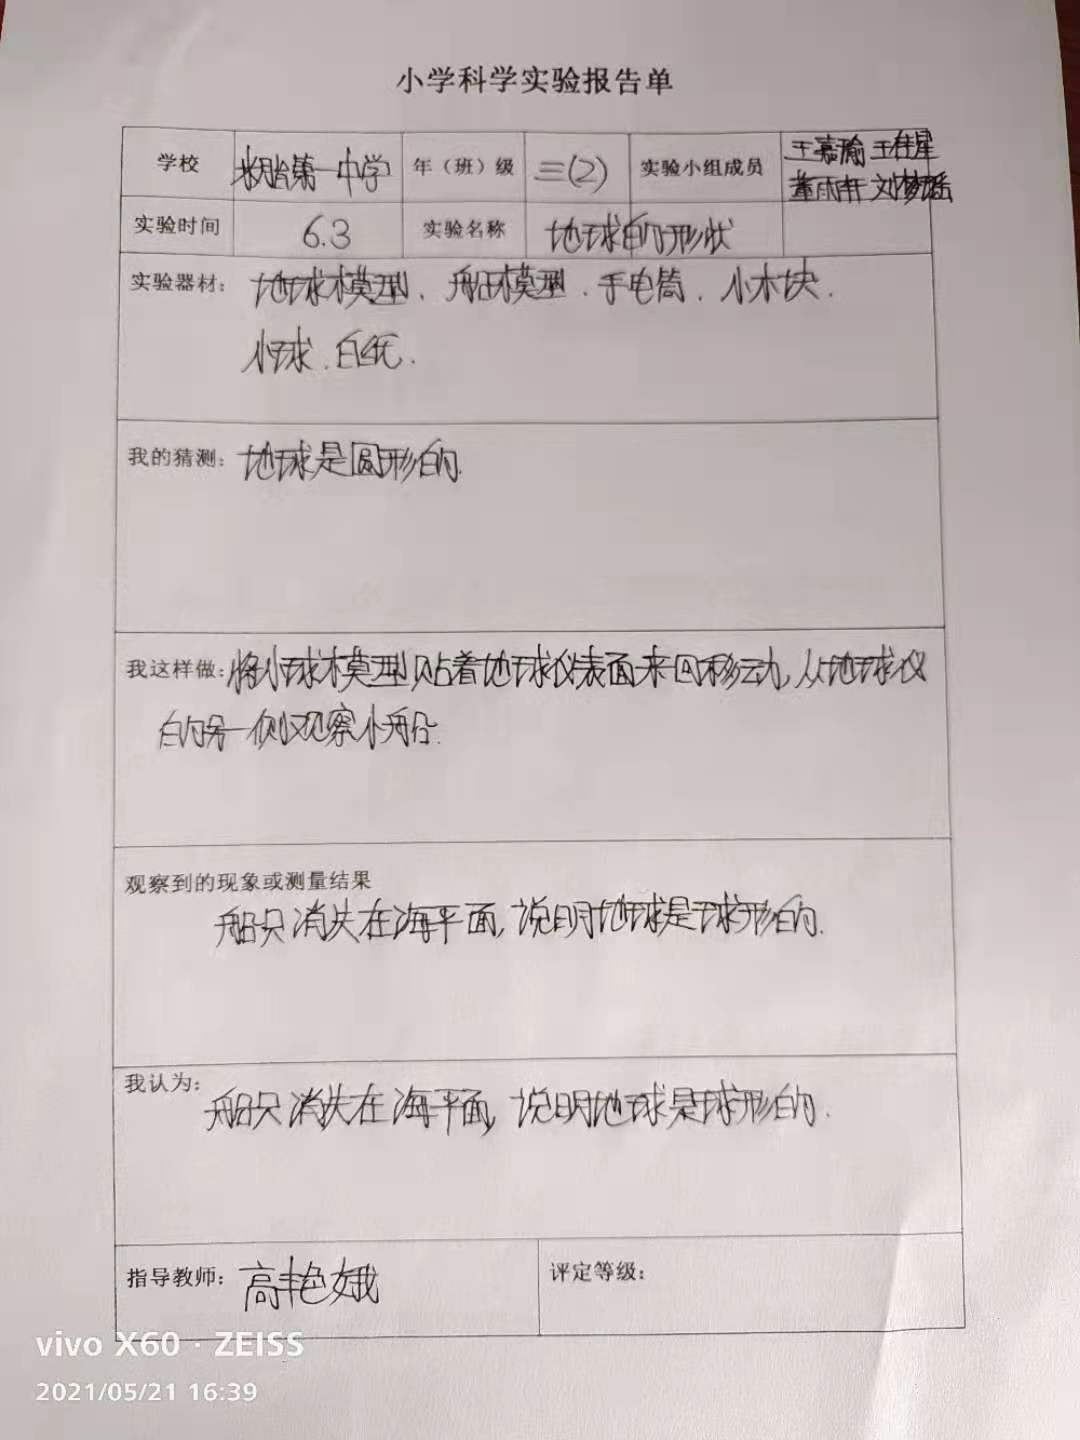 小学科学实验报告单
学校 第一中学 年（班）级 三(2) 实验小组成员 王嘉瑜 王佳星
董雨轩 刘梦瑶
实验时间 6.3 实验名称 地球的形状
实验器材： 地球模型、船模型、手电筒、小木块、
小球、白纸.
我的猜测： 地球是圆形的.
我这样做： 将小球模型贴着地球仪表面来回移动, 从地球仪
的另一侧观察小船.
观察到的现象或测量结果
船只消失在海平面, 说明地球是球形的.
我认为： 船只消失在海平面, 说明地球是球形的.
指导教师： 高艳娥 评定等级：
vivo X60 · ZEISS
2021/05/21 16:39